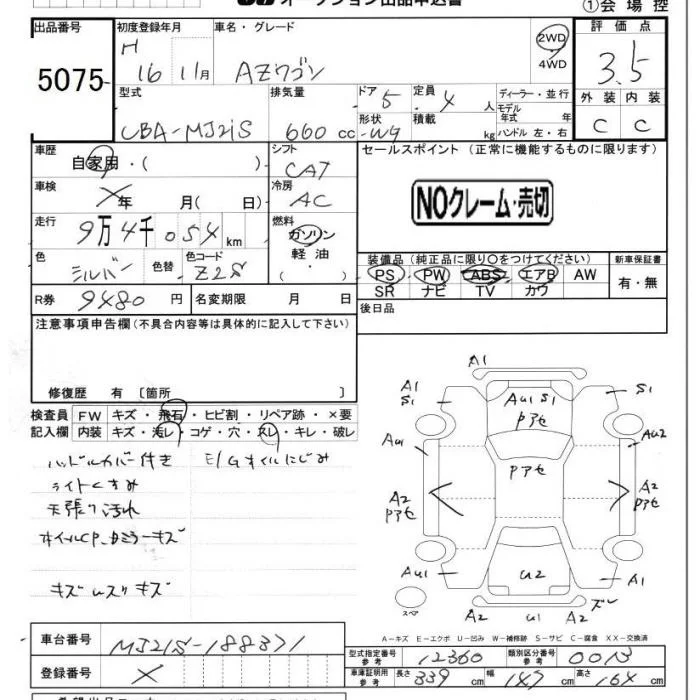 オークション出品申込書
①会場控
出品番号
初度登録年月
車名・グレード
2WD
4WD
評価点
5075
H 16 11月
AZワゴン
3.5
型式
排気量
ドア 5
定員 4 人
ディーラー・並行
モデル年式 年
外装
内装
CBA-MJ21S
660 cc
形状 -W4
積載 kg
ハンドル 左・右
C
C
車歴
自家用・( )
シフト
CAT
セールスポイント (正常に機能するものに限ります)
車検
年 月( 日)
冷房
AC
NOクレーム・売切
走行
9万4千054 km
燃料
ガソリン
軽油
・( )
色
シルバー
色替
色コード
Z2S
装備品 (純正品に限り○をつけてください)
新車保証書
PS PW ABS エアB AW
有・無
SR ナビ TV カワ
R券
9480 円
名変期限 月 日
後日品
注意事項申告欄 (不具合内容等は具体的に記入して下さい)
修復歴 有 〔箇所 〕
検査員 FW キズ・飛石・ヒビ割・リペア跡・×要
記入欄 内装 キズ・汚レ・コゲ・穴・スレ・キレ・破レ
ハンドルカバー付き
E/Gオイルにじみ
ライトくすみ
天張り汚れ
ホイルCP、Dミラーキズ
キズ ムスリキズ
A1
A1
S1
AU1 S1
Pアセ
S1
AU1
Pアセ
AU2
A2
A2
Pアセ
Pアセ
AU1
U2
A1
スペア
A2
U1
A2
ズレ
A-キズ E-エクボ U-凹み W-補修跡 S-サビ C-腐食 XX-交換済
車台番号
MJ21S-188371
型式指定番号 参考
12360
類別区分番号 参考
0013
登録番号
車庫証明用 参考
長さ 339 cm
幅 147 cm
高さ 164 cm